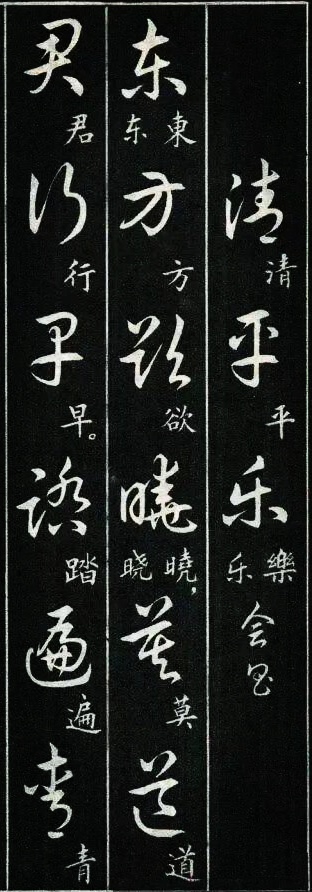 清清平平乐樂乐会昌
东東东方方欲欲晓曉晓，莫莫道道
君君行行早早。踏踏遍遍青青